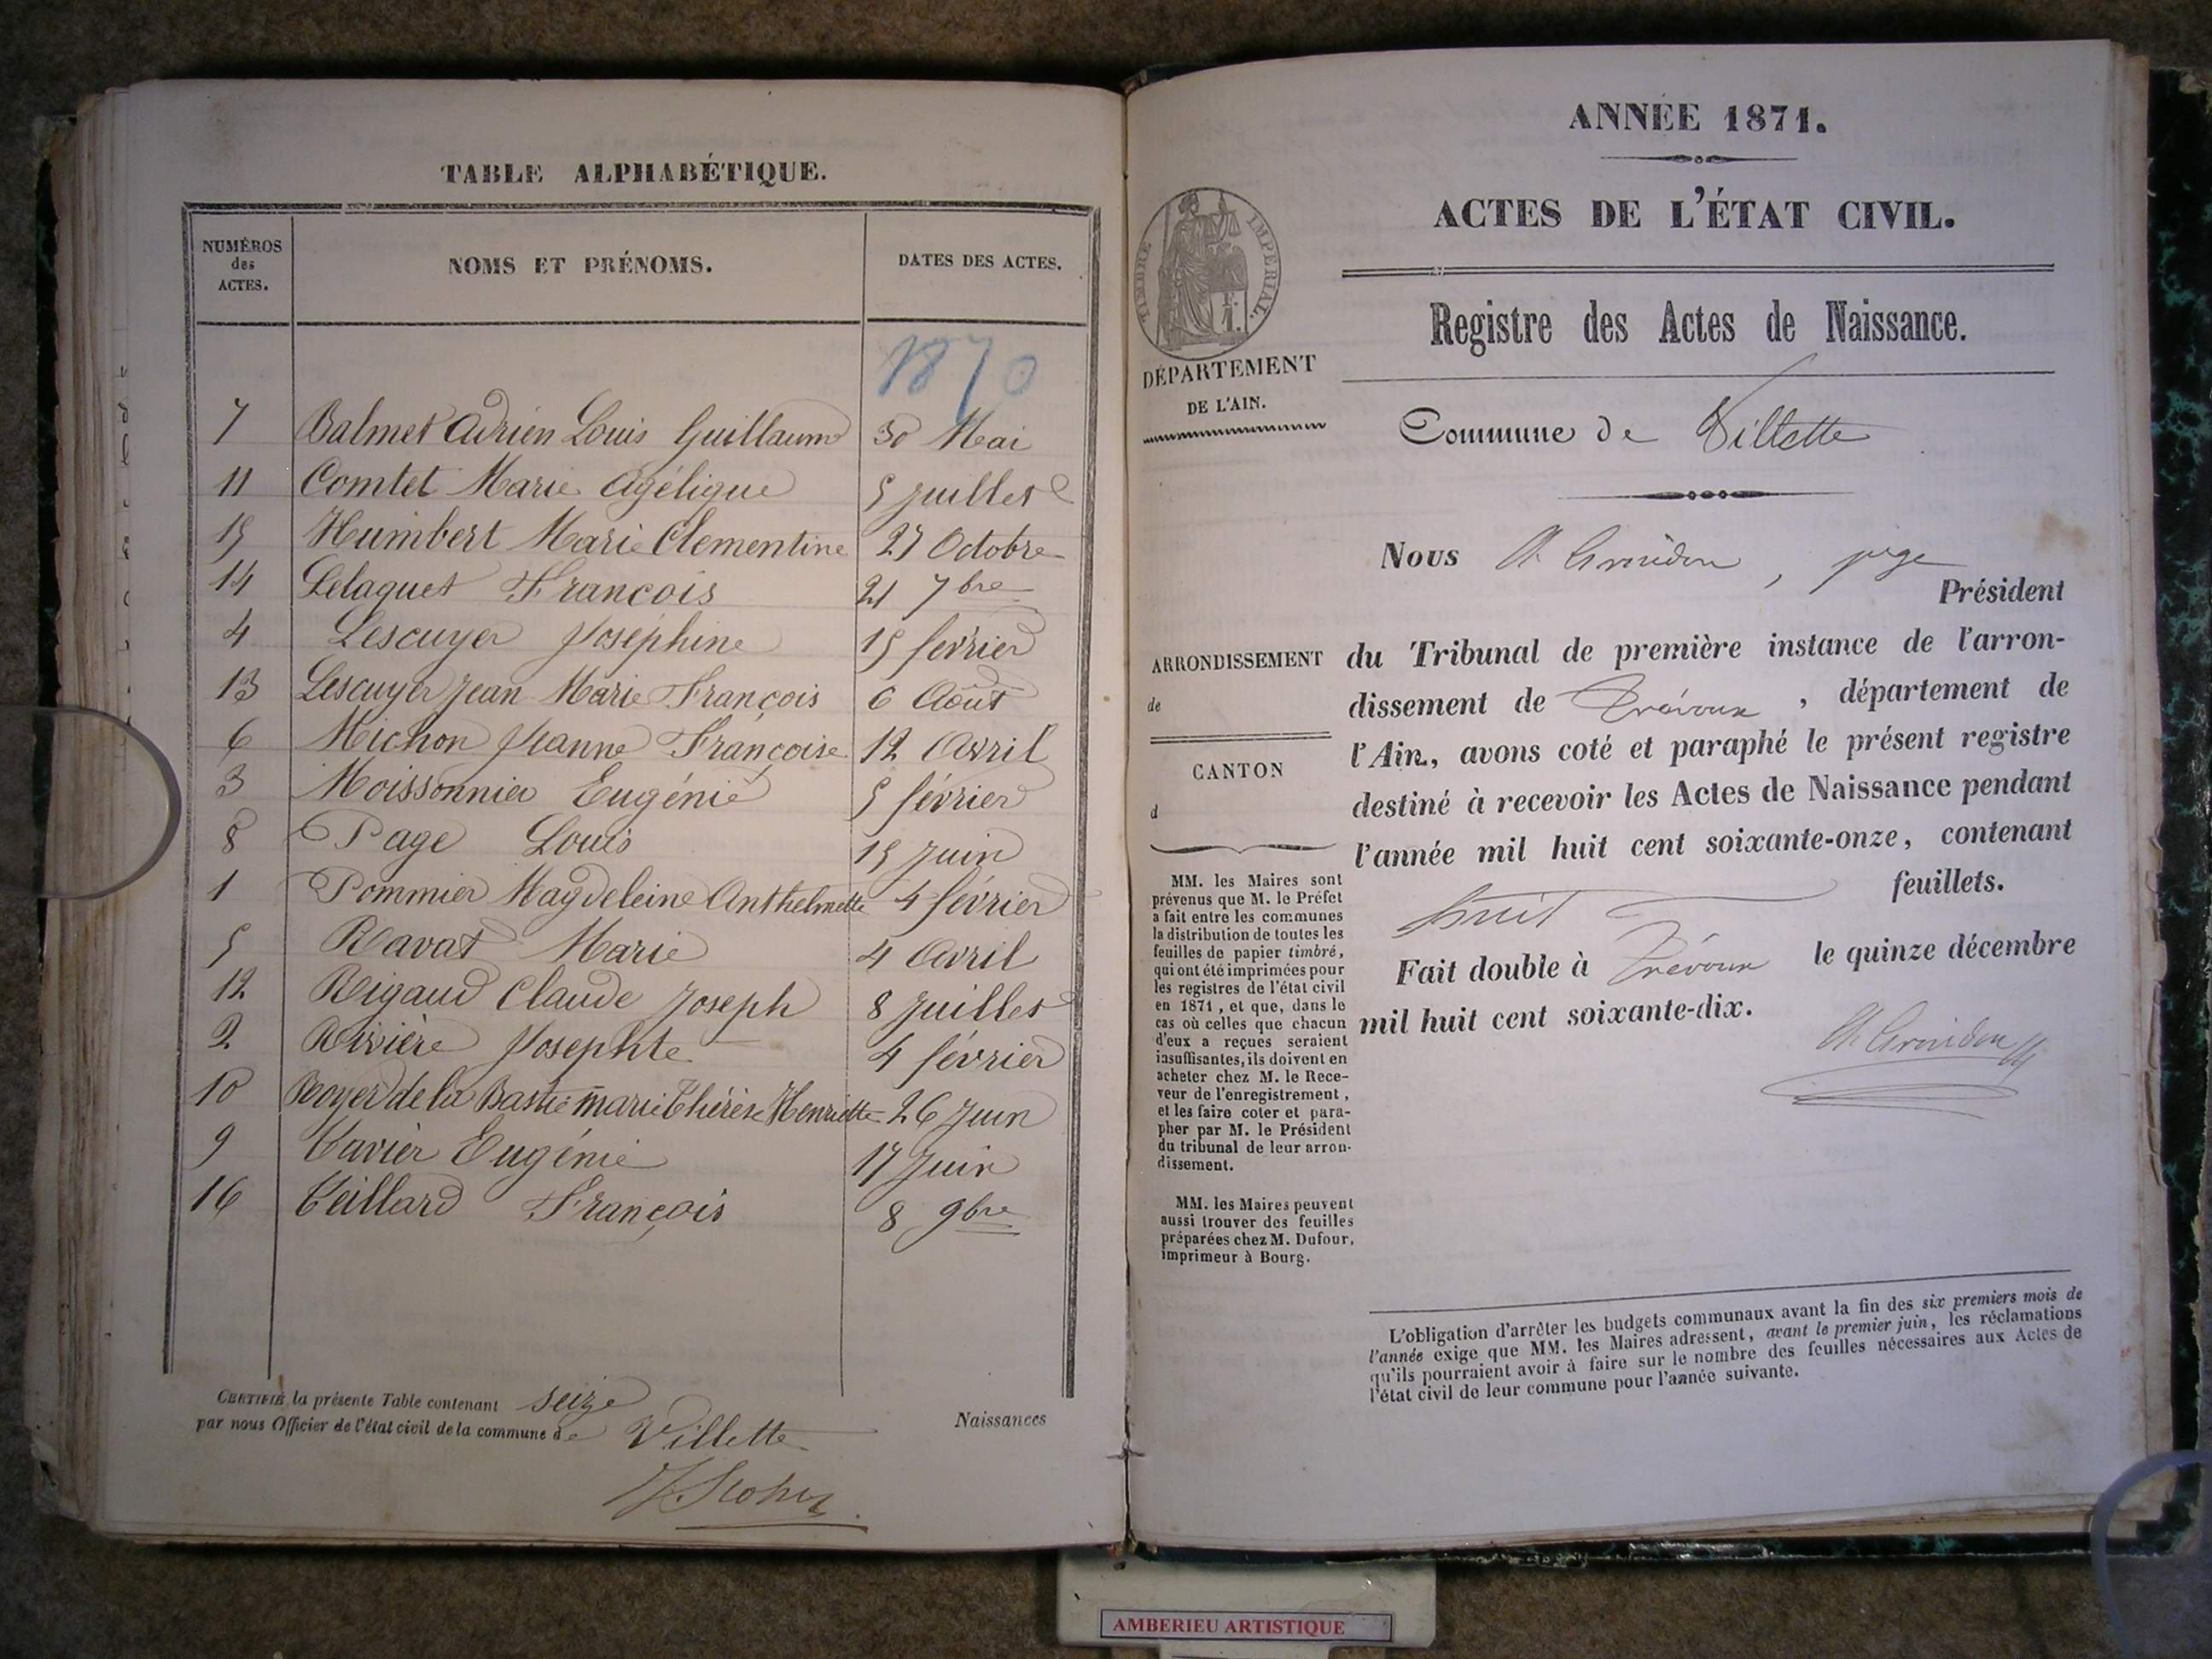 TABLE ALPHABÉTIQUE.
NUMÉROS des ACTES.
NOMS ET PRÉNOMS.
DATES DES ACTES.
1870
7 Balmet Adrien Louis Guillaume 30 Mai
11 Comtet Marie Agélique 5 juillet
15 Humbert Marie Clementine 27 Octobre
14 Lelaquet François 21 7bre
4 Lescuyer Joséphine 15 février
13 Lescuyer Jean Marie François 6 Août
6 Michon Jeanne Françoise 12 Avril
3 Moissonnier Eugénie 5 février
8 Page Louis 15 Juin
1 Pommier Magdeleine Anthelmette 4 février
5 Ravat Marie 4 Avril
12 Rigaud Claude Joseph 8 Juillet
2 Rivière Josephte 4 février
10 Royer de la Bastie marie Thérèse Henriette 26 Juin
9 Tavier Eugénie 17 Juin
16 Teillard François 8 9bre
CERTIFIÉ la présente Table contenant seize Naissances
par nous Officier de l'état civil de la commune de Villette
ANNÉE 1871.
ACTES DE L'ÉTAT CIVIL.
TIMBRE IMPÉRIAL.
Registre des Actes de Naissance.
DÉPARTEMENT
DE L'AIN.
Commune de Villette
Nous , juge
Président
ARRONDISSEMENT
de
CANTON
d
du Tribunal de première instance de l'arron-
dissement de Trévoux , département de
l'Ain, avons coté et paraphé le présent registre
destiné à recevoir les Actes de Naissance pendant
l'année mil huit cent soixante-onze, contenant
huit feuillets.
Fait double à Trévoux le quinze décembre
mil huit cent soixante-dix.
MM. les Maires sont
prévenus que M. le Préfet
a fait entre les communes
la distribution de toutes les
feuilles de papier timbré,
qui ont été imprimées pour
les registres de l'état civil
en 1871, et que, dans le
cas où celles que chacun
d'eux a reçues seraient
insuffisantes, ils doivent en
acheter chez M. le Rece-
veur de l'enregistrement,
et les faire coter et para-
pher par M. le Président
du tribunal de leur arron-
dissement.
MM. les Maires peuvent
aussi trouver des feuilles
préparées chez M. Dufour,
imprimeur à Bourg.
L'obligation d'arrêter les budgets communaux avant la fin des six premiers mois de
l'année exige que MM. les Maires adressent, avant le premier juin, les réclamations
qu'ils pourraient avoir à faire sur le nombre des feuilles nécessaires aux Actes de
l'état civil de leur commune pour l'année suivante.
AMBERIEU ARTISTIQUE